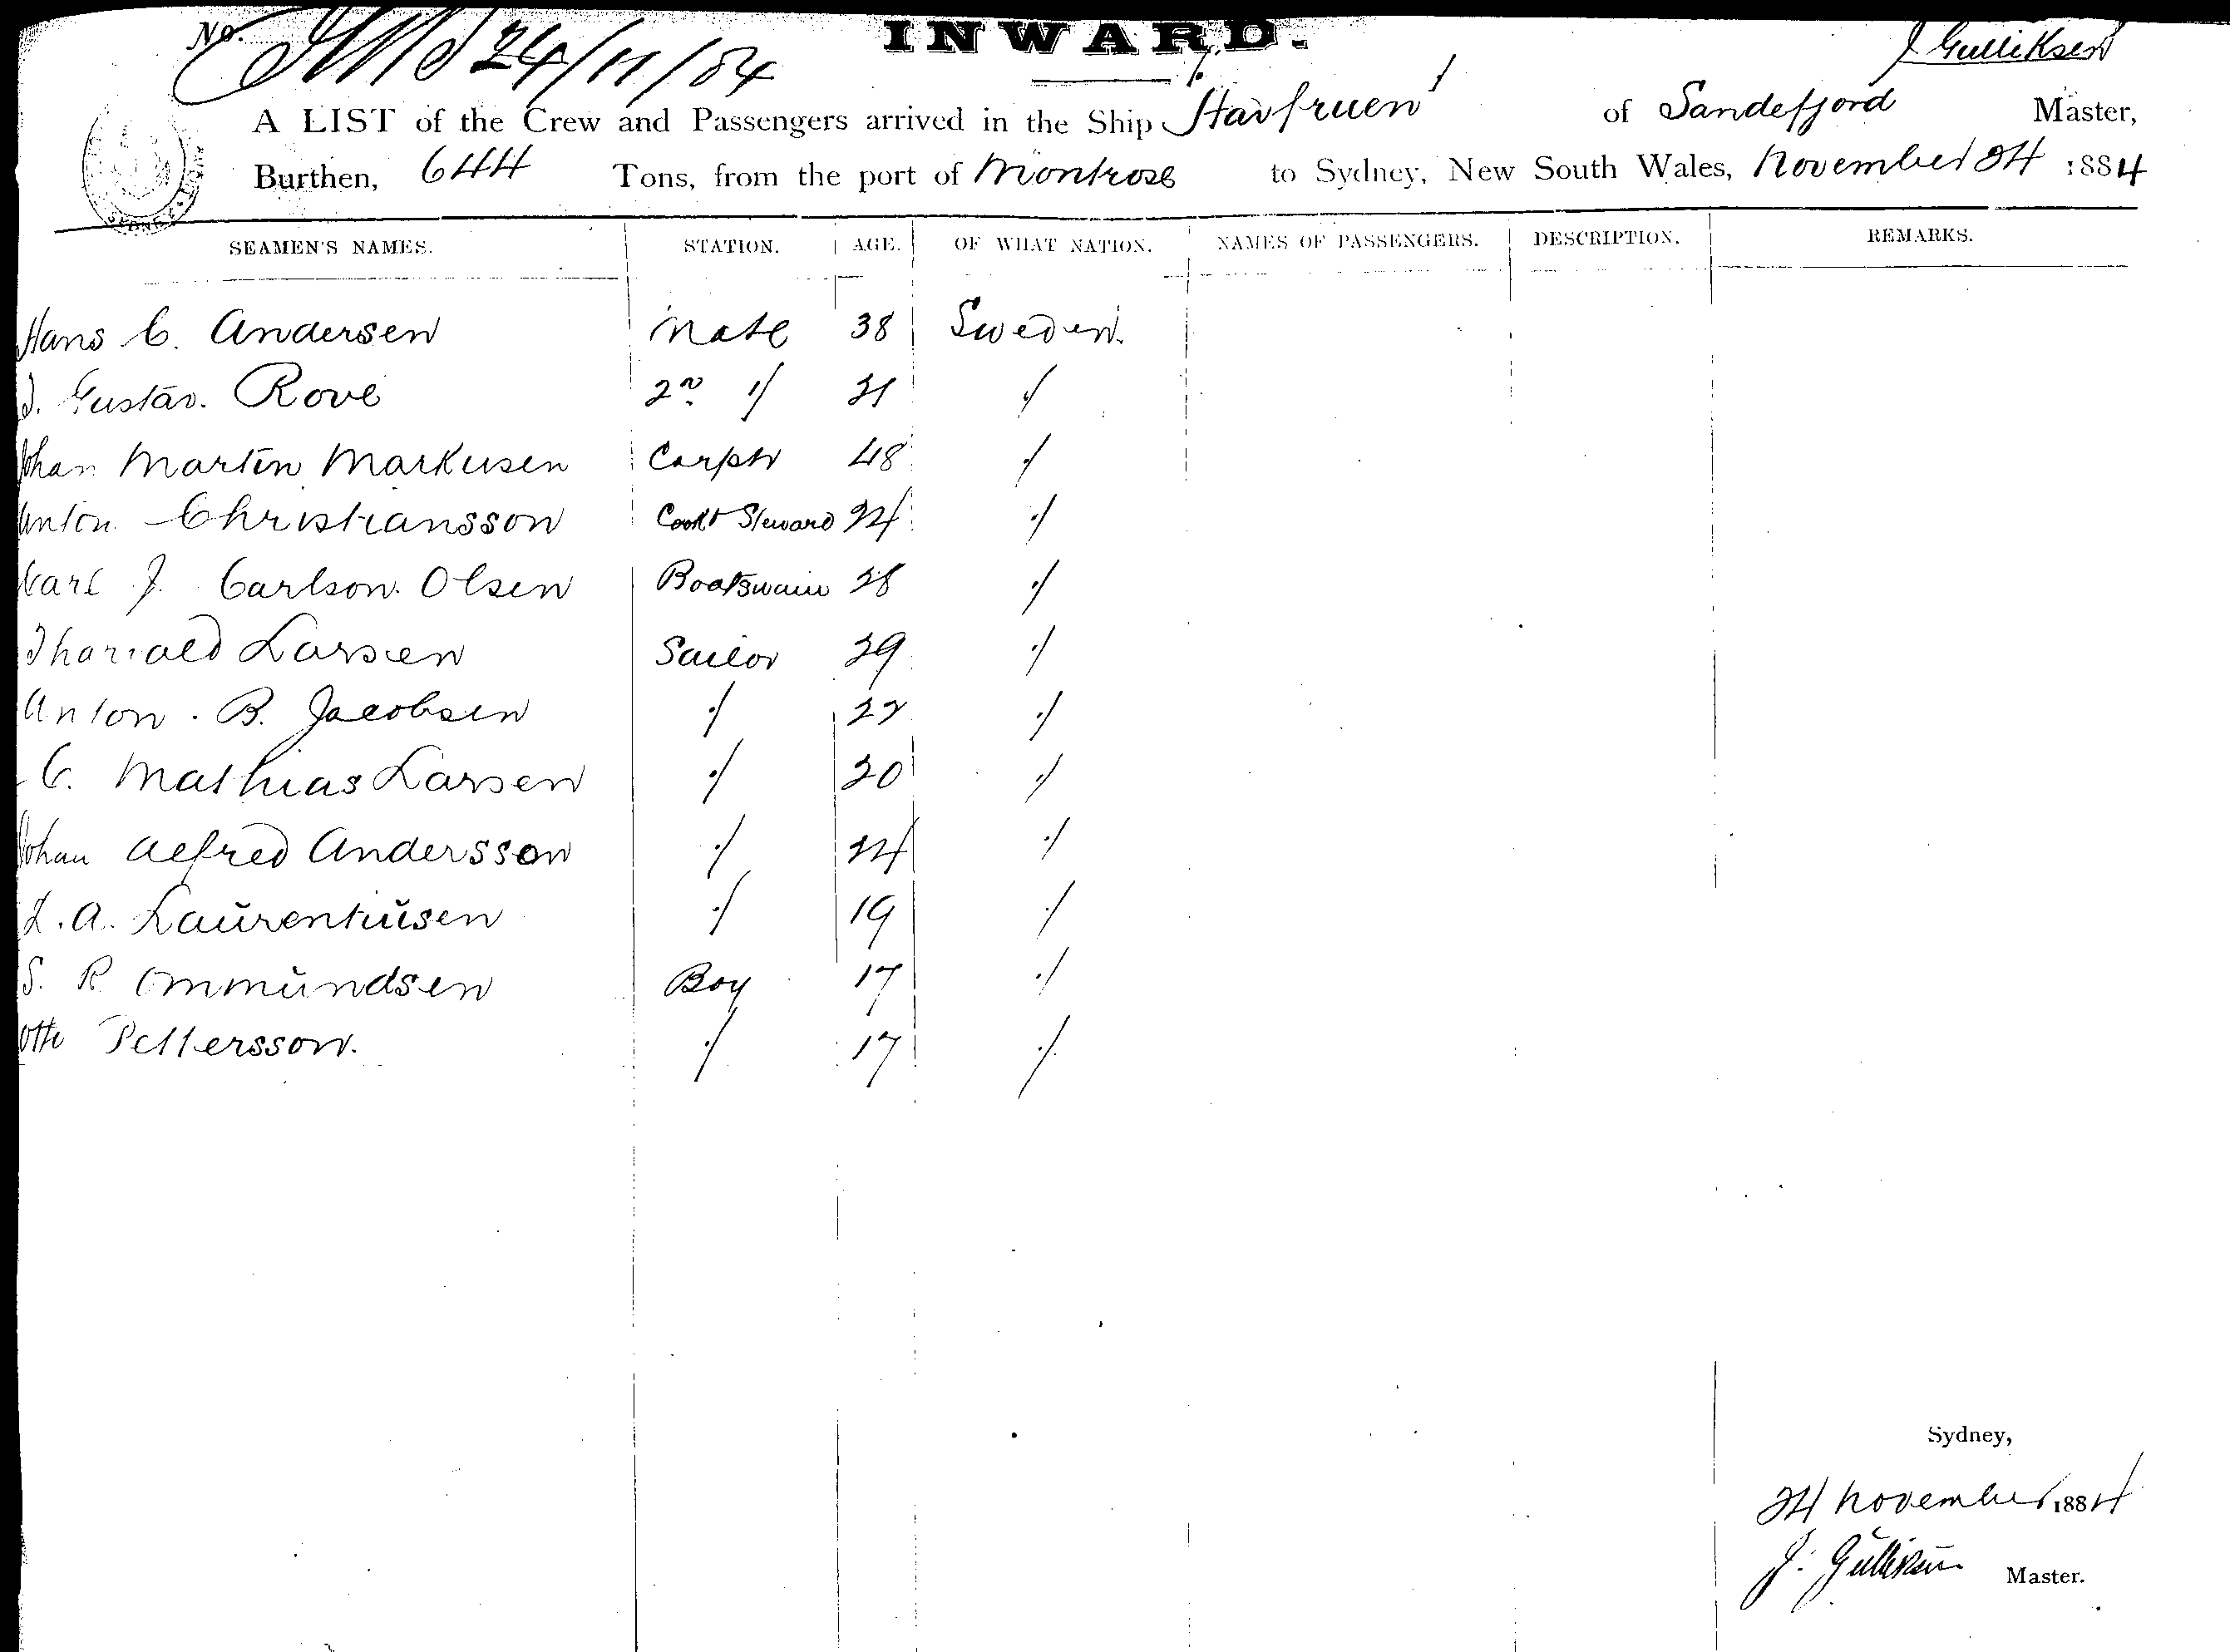 No. 24/11/84
INWARD.
J Gulliksen
A LIST of the Crew and Passengers arrived in the Ship "Havfruen" of Sandefjord Master,
Burthen, 644 Tons, from the port of Montrose to Sydney, New South Wales, November 24 1884
SEAMEN'S NAMES. STATION. AGE. OF WHAT NATION. NAMES OF PASSENGERS. DESCRIPTION. REMARKS.
Hans C. Andersen Mate 38 Sweden.
Gustav. Rove 2nd " 21 "
Johan Martin Markusen Carptr 48 "
Anton Christiansson Cook & Steward 24 "
Karl J. Carlson. Olsen Boatswain 28 "
Tharvald Larsen Sailor 29 "
Anton. B. Jacobsen " 22 "
C. Mathias Larsen " 20 "
Johan Alfred Andersson " 24 "
L. A. Laurentiusen " 19 "
S. R Ommundsen Boy 17 "
Otto Pettersson. " 17 "
Sydney,
24 November 1884
J. Gulliksen Master.